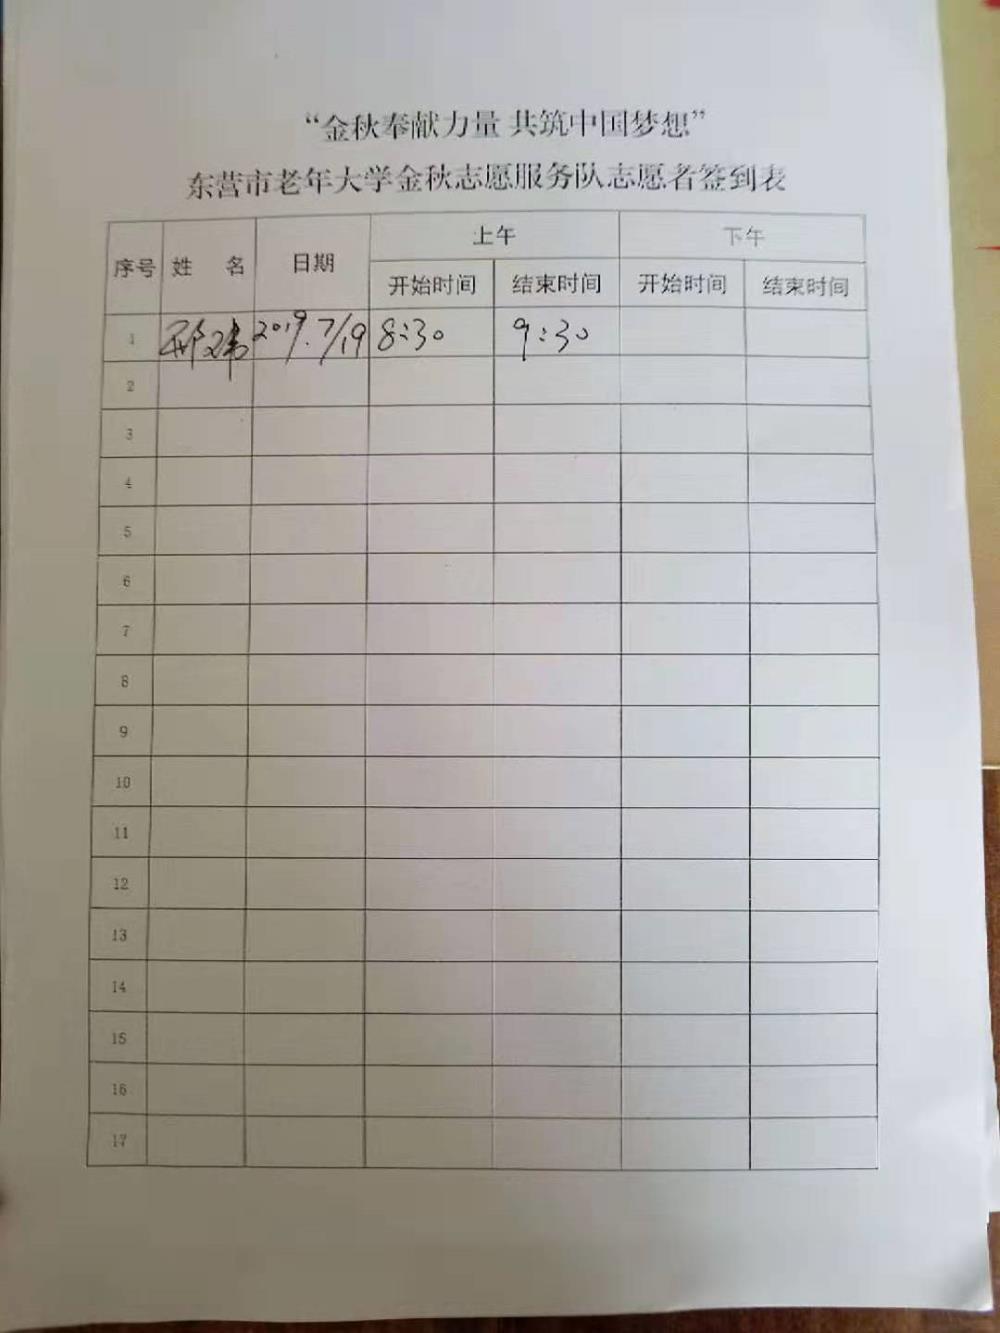 “金秋奉献力量 共筑中国梦想”
东营市老年大学金秋志愿服务队志愿者签到表
序号 姓 名 日期 上午 下午
开始时间 结束时间 开始时间 结束时间
1 邢 2019.7/19 8:30 9:30
2
3
4
5
6
7
8
9
10
11
12
13
14
15
16
17